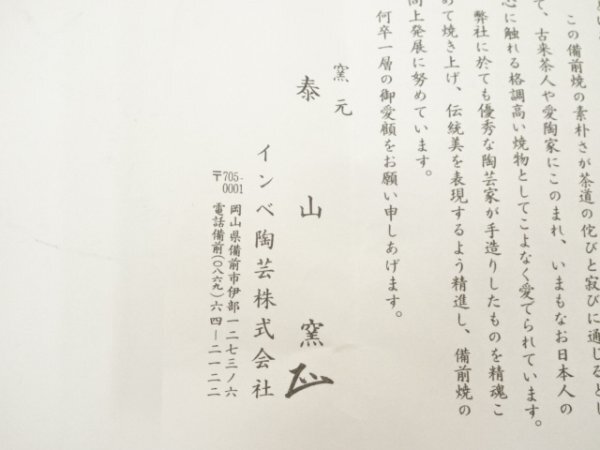 この備前焼の素朴さが茶道の侘びと寂びに通じるとし
て、古来茶人や愛陶家にこのまれ、いまもなお日本人の
心に触れる格調高い焼物としてこよなく愛でられています。
弊社に於ても優秀な陶芸家が手造りしたものを精魂こ
めて焼き上げ、伝統美を表現するよう精進し、備前焼の
向上発展に努めています。
何卒一層の御愛顧をお願い申しあげます。
窯元
泰山窯
インベ陶芸株式会社
〒705-0001 岡山県備前市伊部一二七三ノ六
電話備前(〇八六九)六四-二一二二